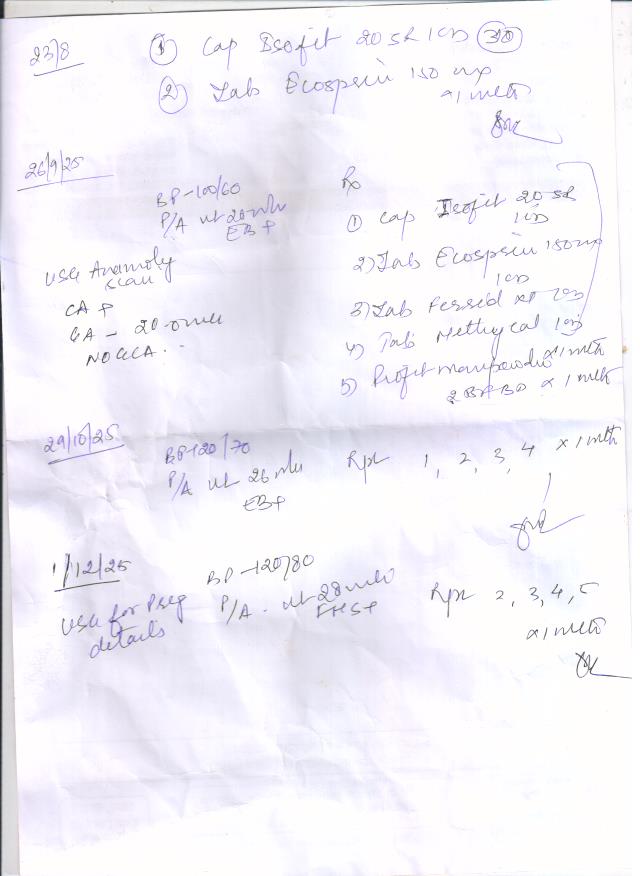 23/8
① Cap Isofit 20 SR 1OD 30
② Tab Ecosprin 150 mg
x 1 mth
26/9/25
BP - 100/60
P/A ut 20 wks
EB+
USG Anamoly
scan
CA +
GA - 20-0 wks
NO GCA.
Rx
① Cap Isofit 20 SR
1OD
2) Tab Ecosprin 150 mg
1OD
3) Tab
4) Tab Methycal 1OD
x 1 mth
5) Profit powder
x 1 mth
29/10/25
BP - 120/70
P/A ut 26 wks
EB+
Rpt 1, 2, 3, 4 x 1 mth
1/12/25
USG for Preg
details
BP - 120/80
P/A - ut 28 wks
FHS+
Rpt 2, 3, 4, 5
x 1 mth